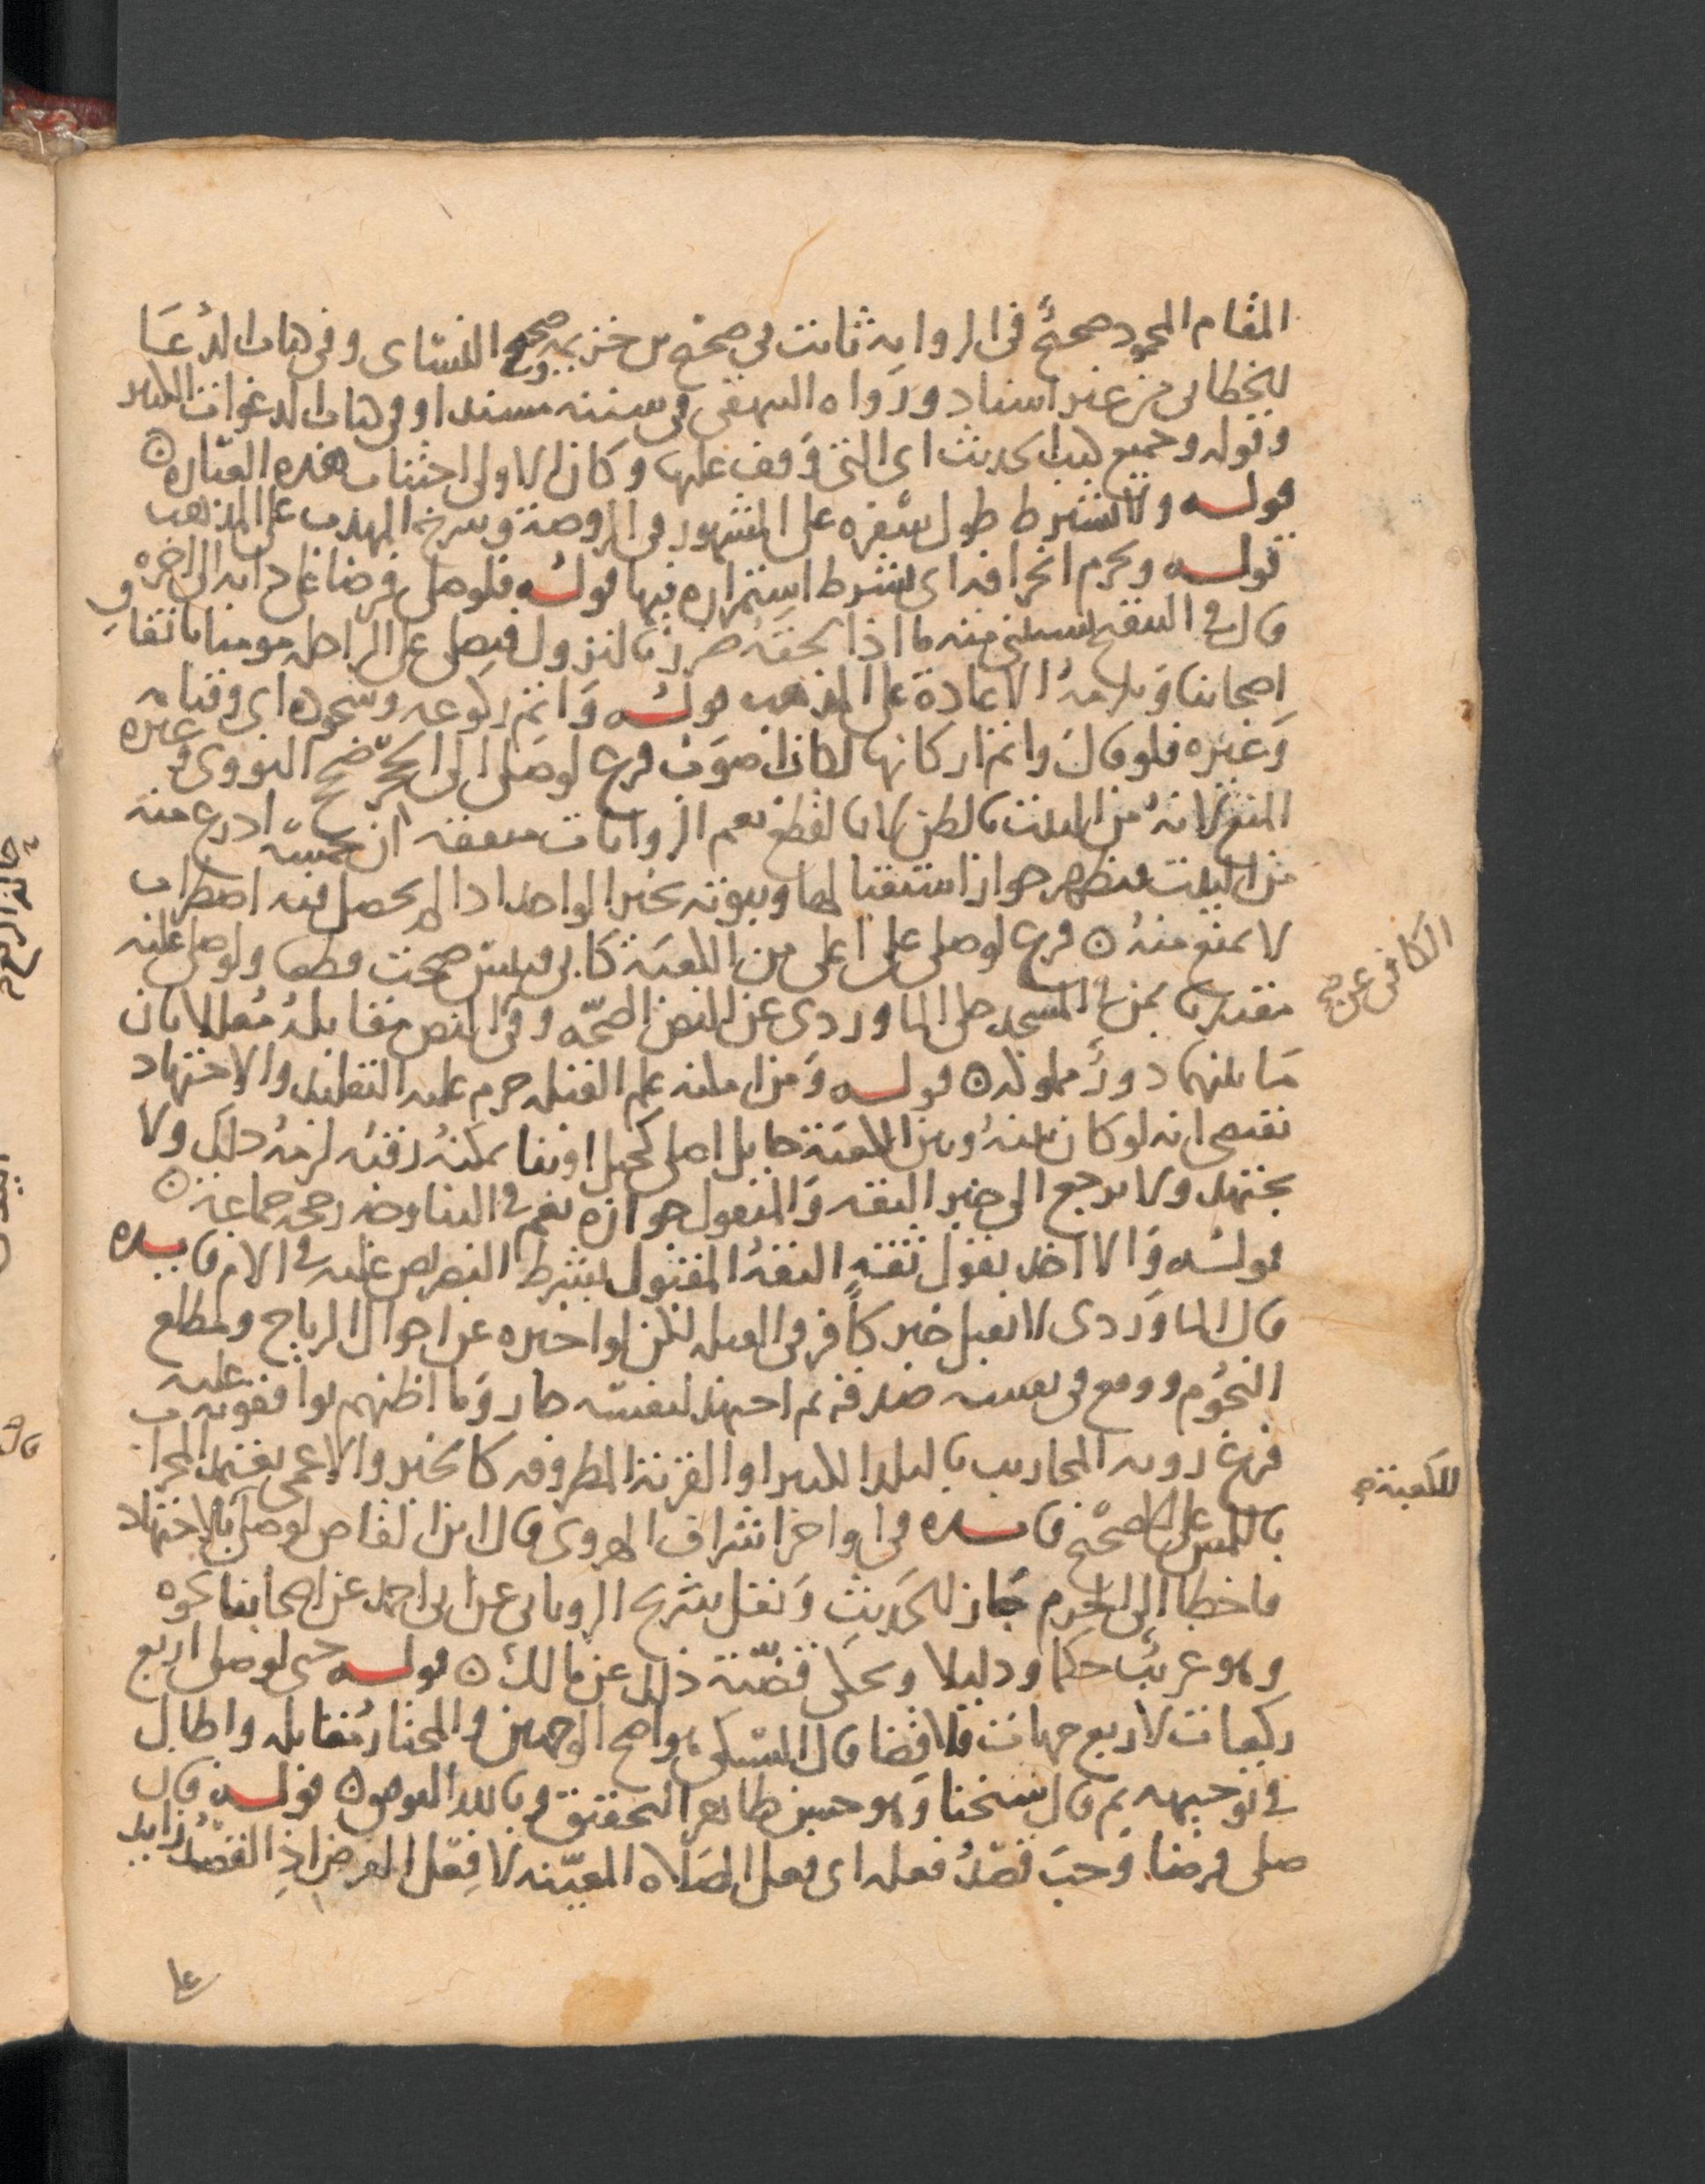 المقام المحمود صحيح في الرواية ثابت في صحيح بن خزيمة وصححه النسائي وفي كتاب الدعا
للخطابي من غير اسناد ورواه البيهقي في سننه مسندا وفي كتاب الدعوات الكبير
وقوله وجميع كتب الحديث اى التي وقف عليها وكان الاولى اجتناب هذه العبارة ه
قوله ولا يشترط طول سفره على المشهور في الروضة وشرح المهذب على المذهب
قوله ويحرم انحرافه اى بشرط استمراره فيها قوله فلو صلى فرضا على دابة الى اخره
قال في التنقيح يستثنى منه ما اذا لحقه ضرر بالنزول فيصلي على الراحلة موميا باتفاق
اصحابنا ويلزمه الاعادة على المذهب قوله واتم ركوعه وسجوده اى وقيامه
وغيره فلو قال واتم اركانها لكان اصوب فرع لو صلى الى الحجر صحح النووي وغيره
المنع لانه من البيت بالظن لا بالقطع نعم الروايات متفقة ان خمسة اذرع منه
من البيت فيظهر جواز استقبالها وثبوته بخبر الواحد اذا لم يحصل فيه اضطراب
لا يمنع منه ه فرع لو صلى على اعلى من الكعبة كابي قبيس صحت قطعا ولو صلى عليه
مقتديا بمن في المسجد حكى الماوردي عن النص الصحة وفي النص مقابله معللا بان
ما بينهما دور مملوكة ه قوله ومن امكنه علم القبلة حرم عليه التقليد والاجتهاد
يقتضي انه لو كان بينه وبين الكعبة حايل اصلي كجبل او بنا يمكنه رقيه لزمه ذلك ولا
يجتهد ولا يرجع الى خبر الثقة والمنقول جوازه نعم في البنا وجه رجحه جماعة ه
قوله والا اخذ بقول ثقة الثقة المقبول بشرط التبصر نص عليه في الام فايده
قال الماوردي لا يقبل خبر كافر في القبلة لكن لو اخبره عن احوال الرياح ومطلع
النجوم ووقع في نفسه صدقه ثم اجتهد لنفسه جاز وما اظنهم يوافقونه عليه
فرع روية المحاريب بالبلد الكبير او القرية المطروقة كالخبر والاعمى يعتمد المحراب
باللمس على الاصح فايده في اواخر اشراف الهروي قال ابن القاص لو صلى بالاجتهاد
فاخطا الى الحرم جاز للحديث ونقل شريح الروياني عن ابي احمد عن اصحابنا نحوه
وهو غريب حكما ودليلا ويحكى قضية ذلك عن مالك ه قوله حتى لو صلى اربع
ركعات لاربع جهات فلا قضا قال السبكي هو اصح الوجهين والمختار مقابله واطال
في توجيهه ثم قال شيخنا وهو حسن ظاهر التحقيق وبالله التوفيق قوله قال
صلى فرضا وجب قصد فعله اى فعل الصلاة المعينة لا فعل الفرض اذ القصد زايد
الكافي عن
للكعبة